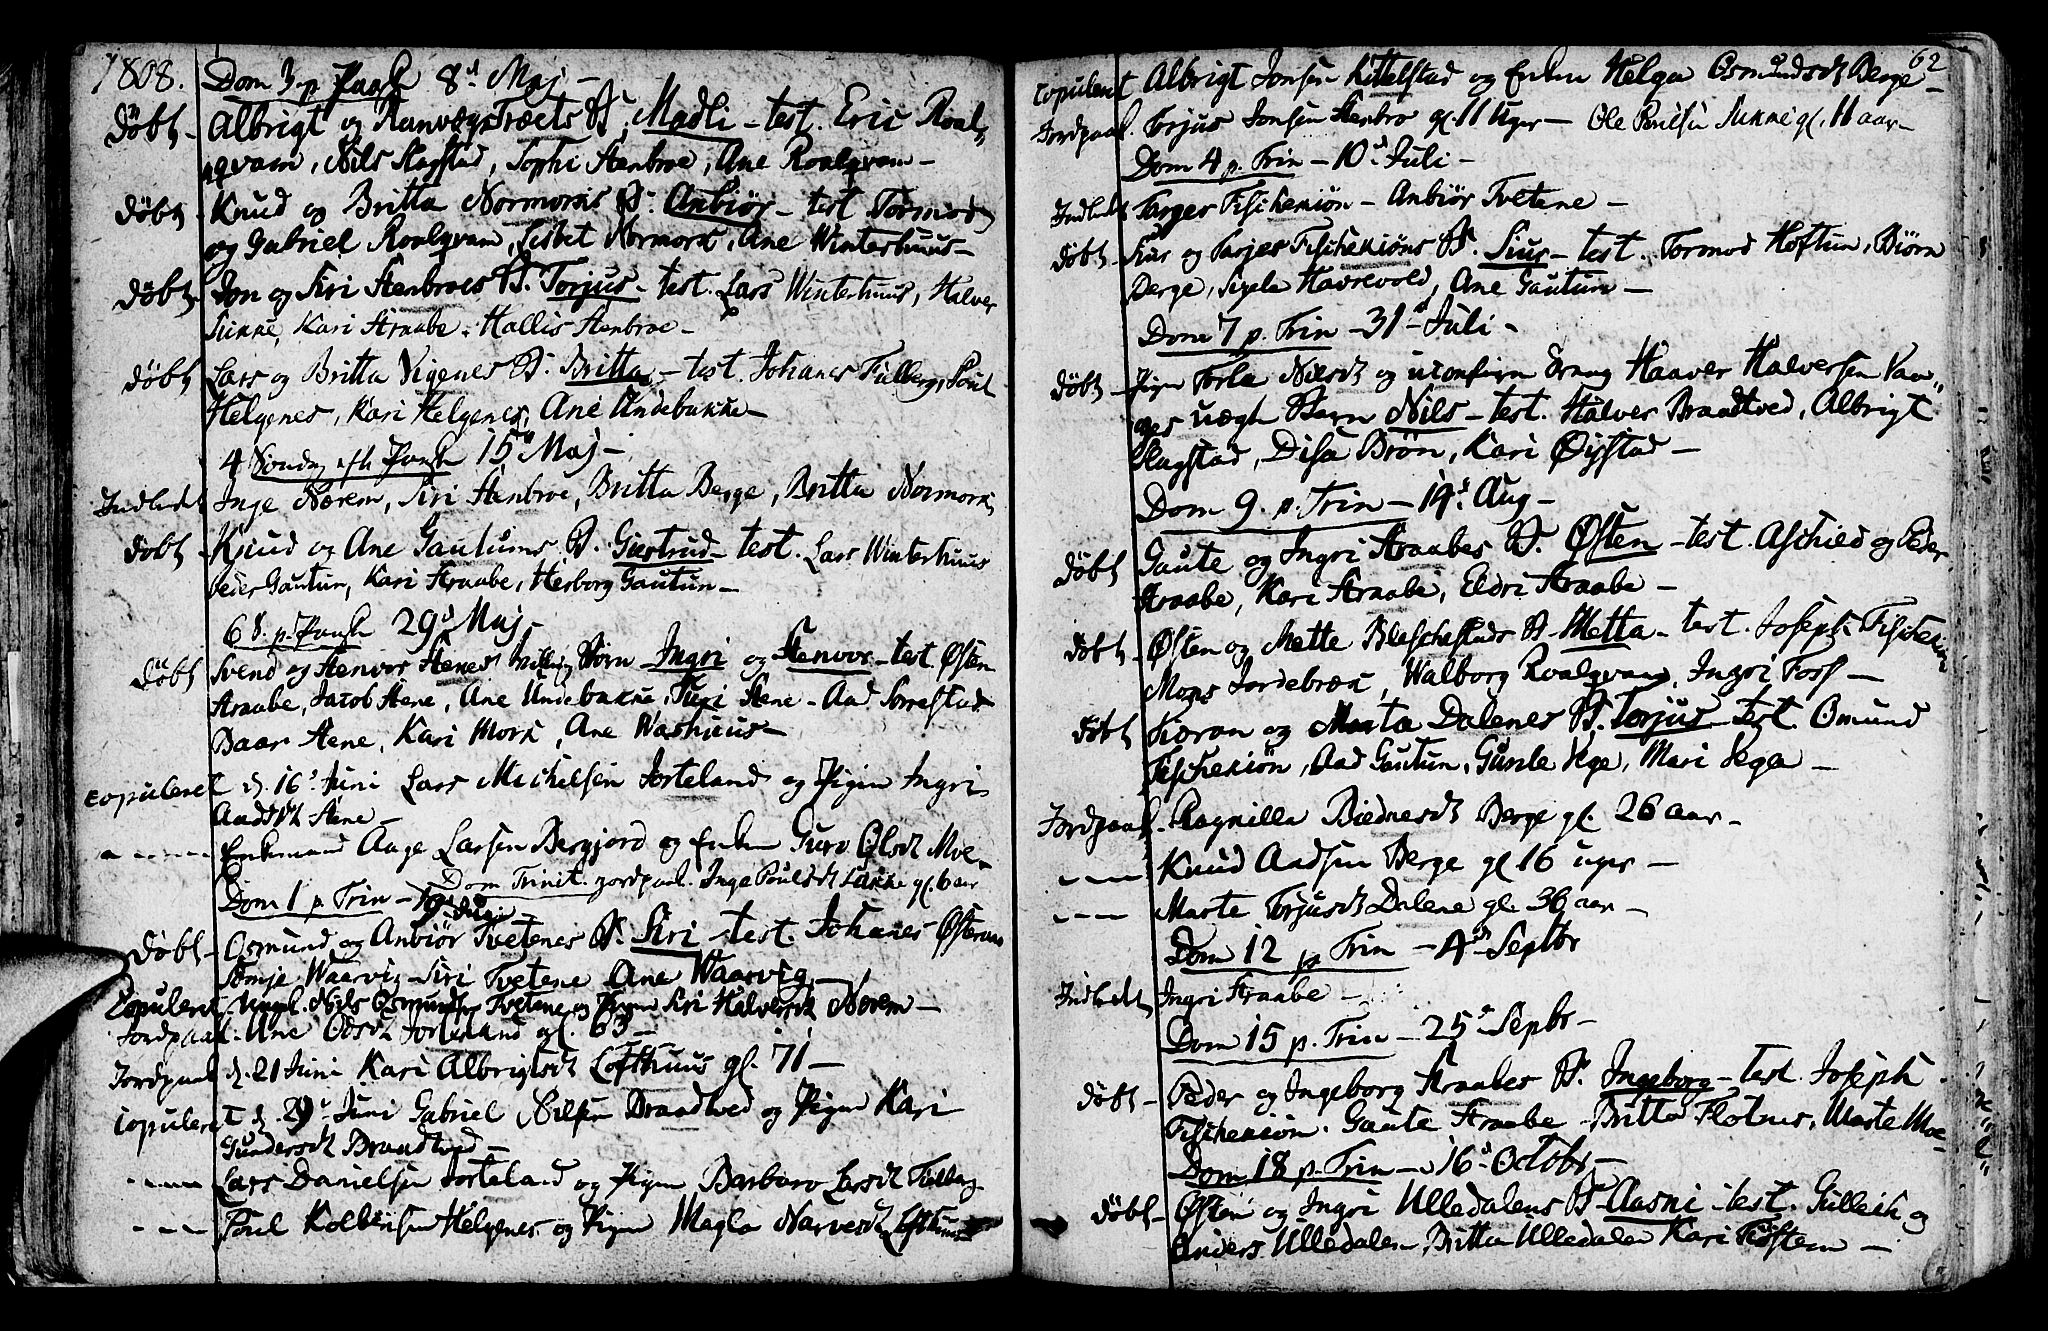 1808. Dom 3 p Paask 8d Maj –
døbt Albrigt og Ranvægs Træets B. Madli – test. Eric Roal,
qvam, Nils Slagstad, Sophi Stenbroe, Ane Roalqvam –
døbt – Knud og Britta Normorks B. Anbiör – test Tormod
og Gabriel Roalqvam, Lisbet Normork, Ane Winterhuus –
døbt – Jon og Siri Stenbroes B. Torjus – test. Lars Winterhuus, Halver
Kari Straabe. Hallis Stenbroe –
døbt Lars og Britta Vigenes B. Britta – test. Johanes Poul
Helgenes, Kari Helgenes, Ane Undebakke –
4 Søndag eft Paask 15 Maj –
Indledet Inge Nærem, Siri Stenbroe, Britta Berge, Britta Normork
døbt – Knud og Ane Gautums B. Giertrud – test. Lars Winterhuus
Peder Gautun, Kari Straabe, Herborg Gautun –
6 S. p. Paask 29d Maj –
døbt Svend og Stenvor Stenes Børn Ingri og Stenvor – test Østen
Straabe, Jacob Stene, Ane Undebakke, Siri Stene – Aad
Baar Stene, Kari Mork, Ane Washuus –
copuleret d. 16d Juni Lars Michelsen Jorteland og Pigen Ingri
Aadsdt Stene –
– – – – Enkemand Aage Larsen Bergjord og Enken Guro Olsdt Moe –
Dom Trinit. jordpaak. Inge Poulsdt gl. 6 aar
Dom 1 p Trin – 19 Juni
døbt – Osmund og Anbiör Tvetenes B. Siri – test. Johanes
Waarvig – Siri Tvetene Ane Waarvig –
Copuleret – Ungk. Nils Osmundsen Tvetene og Pigen Siri Halversdt Norem –
Jordpaak – Ane Odsdt Jorteland gl. 63 –
Jordpaak d. 21 Juni Kari Albrigtsdt Lofthuus gl. 71 –
Copuleret d. 29d Juni Gabriel Nilsen Brandtved og Pigen Kari
Gundersdt Brandtved –
– – – – Lars Danielsen Jorteland og Pigen Barbaro Larsdt
– – – Poul Kolbensen Helgenes og Pigen Magla Narvesdt Lofthuus
62
copuleret Albrigt Jonsen Kittelstad og Enken Helga Osmundsdt Berge –
Jordpaak. Torjus Jonsen Stenbro gl. 11 Uger – Ole Poulsen gl. 11 aar –
Dom 4 p. Trin – 10d Juli –
Indledet Targer Fischekiön – Anbiör Tvetene –
døbt – og Fischekiöns B. Siur – test. Tormod Hoftun, Biörn
Berge, Havrevold, Ane Gautun –
Dom 7 p. Trin – 31d Juli –
døbt – Pigen Torla Nilsdt og uconfirm Dreng Haaver Halversen Vaa„
ges uægt Barn Nils – test. Halver Brandtved, Albrigt
Slagstad, Disa Brön, Kari Øifstad –
Dom 9. p. Trin – 14d Aug –
døbt Gaute og Ingri Straabes B. Østen – test. Aschied og Peder
Straabe, Kari Straabe, Eldri Straabe –
døbt – Østen og Mette B. Metta – test. Joseph Fischekiön
Mons Jordebræk, Walborg Roalqvam, Ingri Foss –
døbt Koron og Marta Dalenes B. Torjus – test Osmund
Fischekiön, Aad Gautun, Gunle Mari Sega –
Jordpaak. Ragnilla Biednesdt Berge gl. 26 aar –
– – – Knud Aadsen Berge gl 16 uger –
– – – Marte Torjusdt Dalene gl. 36 aar –
Dom 12 p Trin – 4d Septbr
Indledet Ingri Straabe –
Dom 15 p. Trin – 25d Sepbr –
døbt – Peder og Ingeborg Straabes B. Ingeborg – test. Joseph
Fischekiön. Gaute Straabe – Britta Flotnes, Marte Moe –
Dom 18 p. Trin – 16d Octobr –
døbt – Østen og Ingri Ulledalens B – Aasni – test. Gulleik og
Anders Ulledalen, Britta Ulledalen Kari –